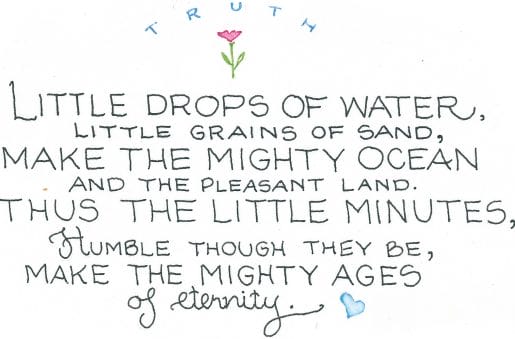 TRUTH
LITTLE DROPS OF WATER,
LITTLE GRAINS OF SAND,
MAKE THE MIGHTY OCEAN
AND THE PLEASANT LAND.
THUS THE LITTLE MINUTES,
HUMBLE THOUGH THEY BE,
MAKE THE MIGHTY AGES
of eternity.